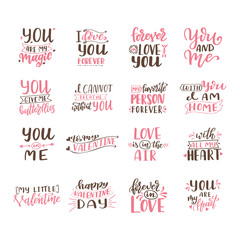 YOU
ARE MY
Magic
I love
YOU
FOREVER
forever
LOVE
YOU
YOU
and
ME
YOU
GIVE ME
butterflies
I CANNOT
breathe
without
YOU
my favorite
PERSON
FOREVER
WITH
YOU
I AM
HOME
YOU
in
ME
to my
VALENTINE
LOVE
IS IN
THE
AIR
with
ALL MY
HEART
MY LITTLE
Valentine
happy
VALENTINE
DAY
forever
in
LOVE
YOU
ARE
my